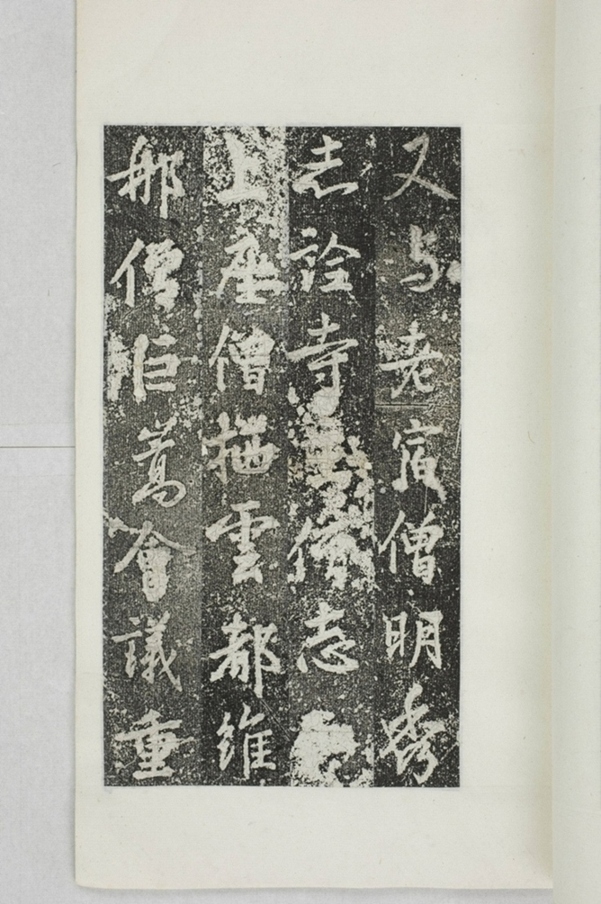 又与老宿僧明秀
志詮寺主僧志
上座僧栖雲都維
那僧巨嵩會議重